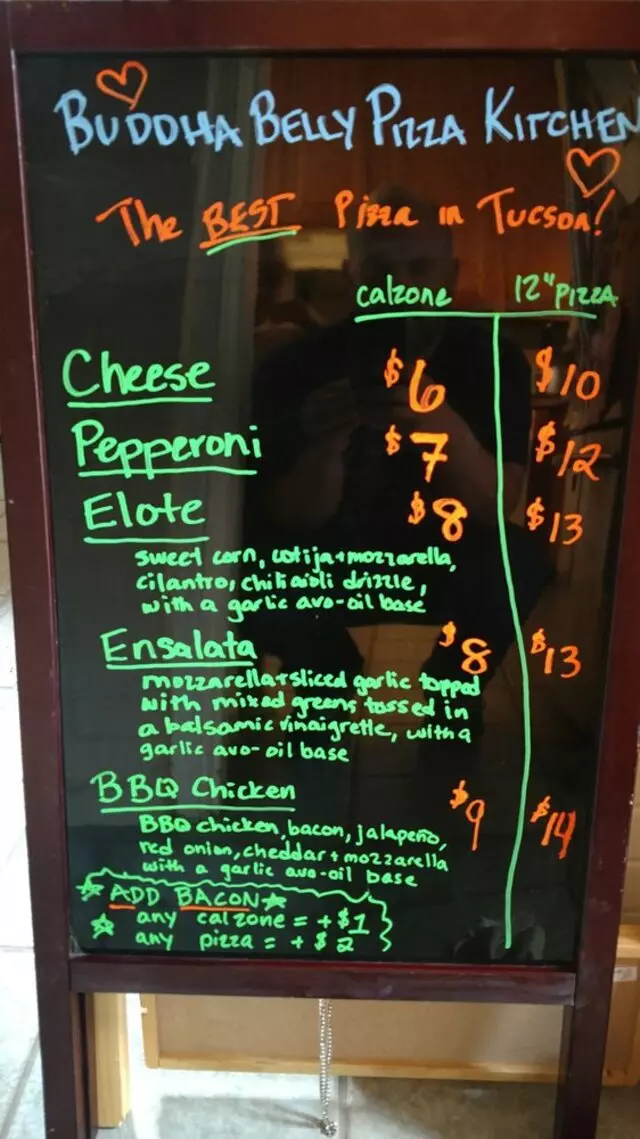 BUDDHA BELLY PIZZA KITCHEN
The BEST Pizza in Tucson!
calzone 12" PIZZA
Cheese $6 $10
Pepperoni $7 $12
Elote $8 $13
sweet corn, cotija + mozzarella,
cilantro, chili aioli drizzle,
with a garlic avo-oil base
Ensalata $8 $13
mozzarella + sliced garlic topped
with mixed greens tossed in
a balsamic vinaigrette, with a
garlic avo-oil base
BBQ Chicken $9 $14
BBQ chicken, bacon, jalapeño,
red onion, cheddar + mozzarella
with a garlic avo-oil base
ADD BACON
any calzone = + $1
any pizza = + $2